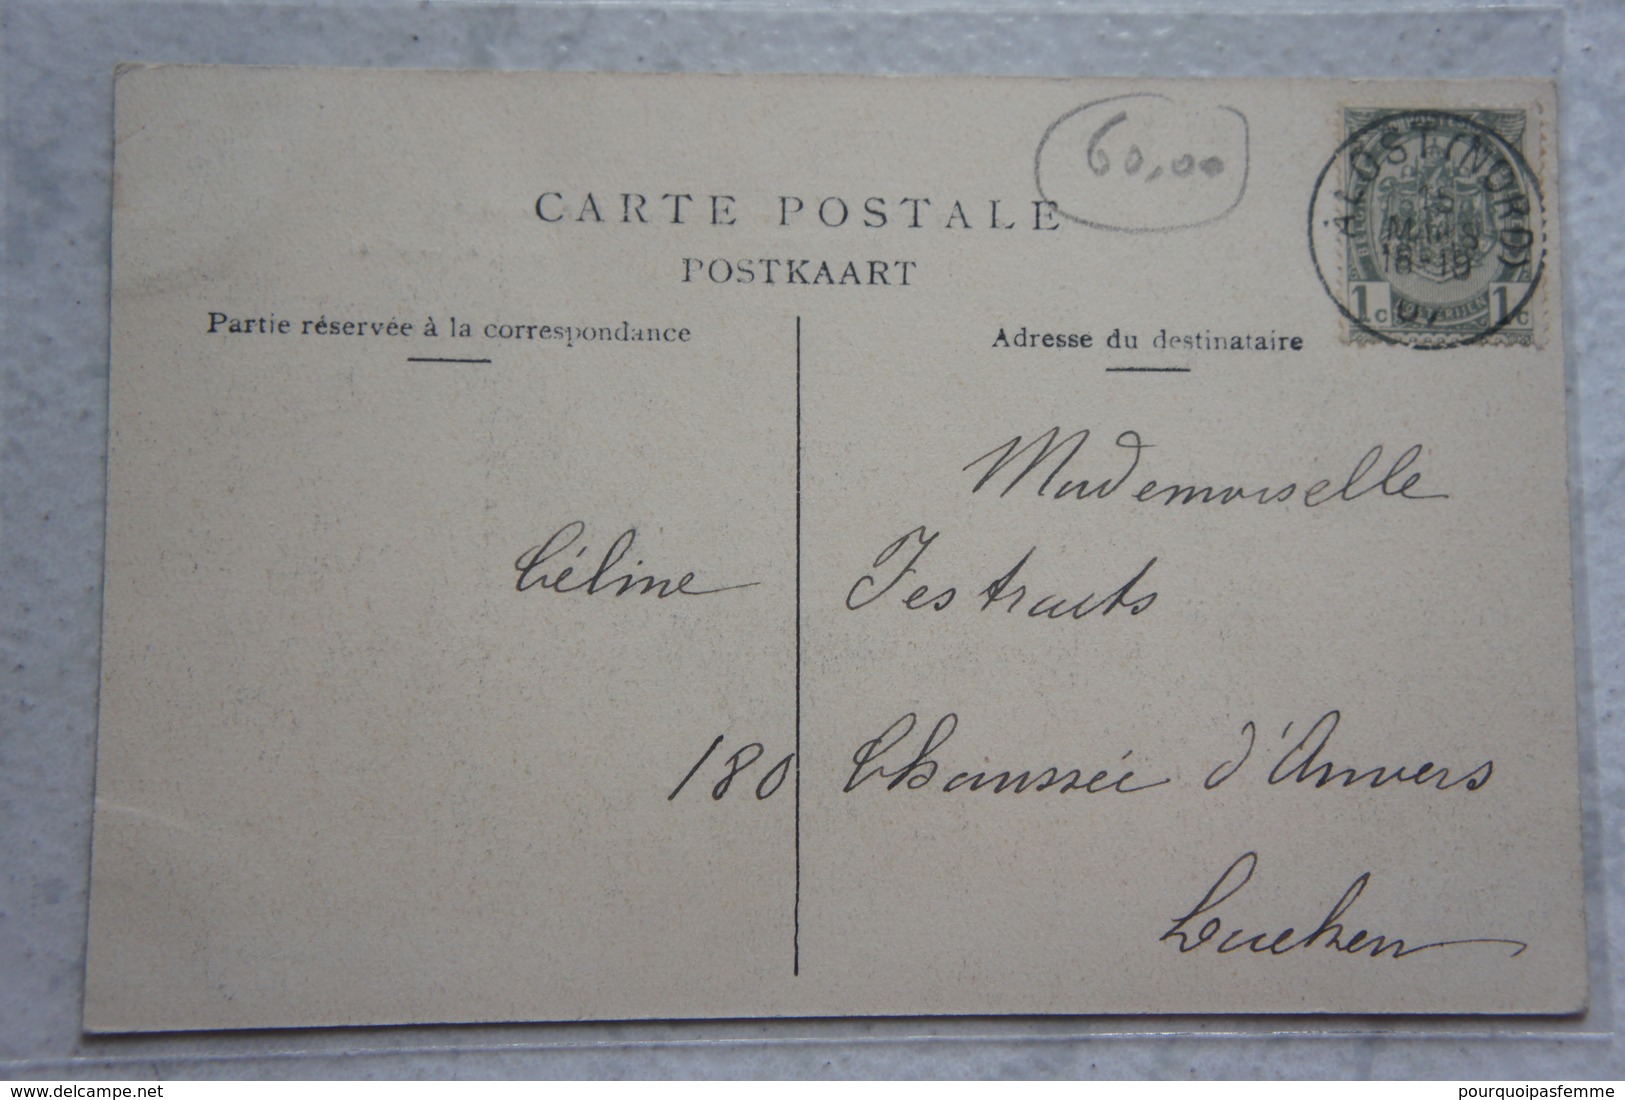 60,00
CARTE POSTALE
POSTKAART
Partie réservée à la correspondance
Adresse du destinataire
AALOST (NORD)
15
MARS
18-19
07
1c 1c
Mademoiselle
Céline Festraets
180 Chaussée d'Anvers
Lueken
delcampe.net
pourquoipasfemme